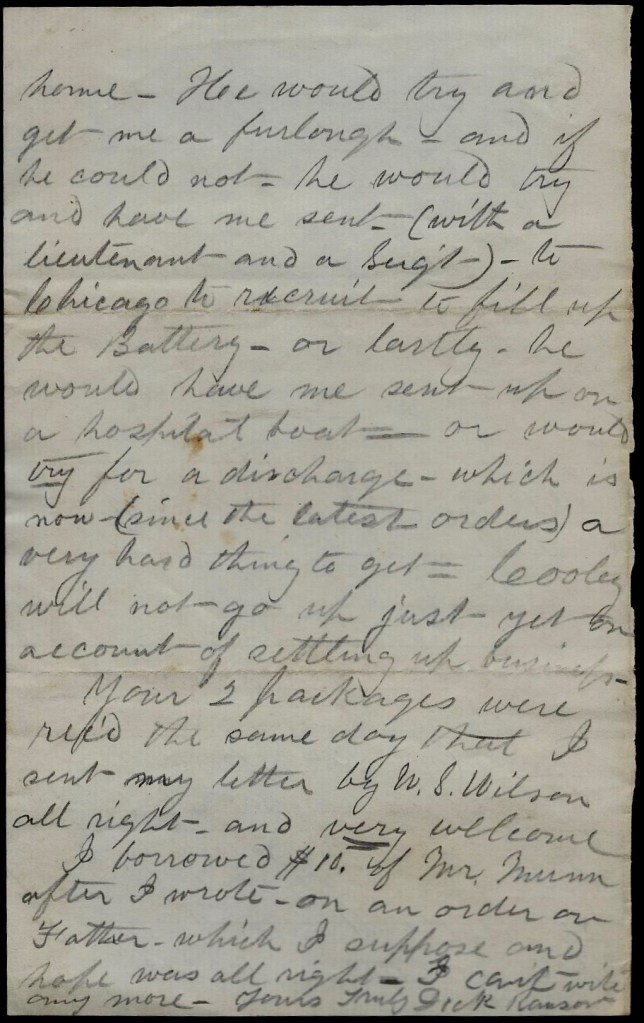 home - Hee would try and
get me a furlough - and if
he could not - he would try
and have me sent - (with a
lieutenant and a Sergt) - to
Chicago to recruit to fill up
the Battery - or lastly - he
would have me sent up on
a hospital boat = or would
try for a discharge - which is
now - (since the latest orders) a
very hard thing to get = Cooley
will not go up just yet on
account of settling up business -
Your 2 packages were
rec'd the same day that I
sent my letter by W. S. Wilson
all right - and very wellcome
I borrowed $10. of Mr. Munn
after I wrote - on an order on
Father - which I suppose and
hope was all right - I cant write
any more - Yours Truly Dick Ransom